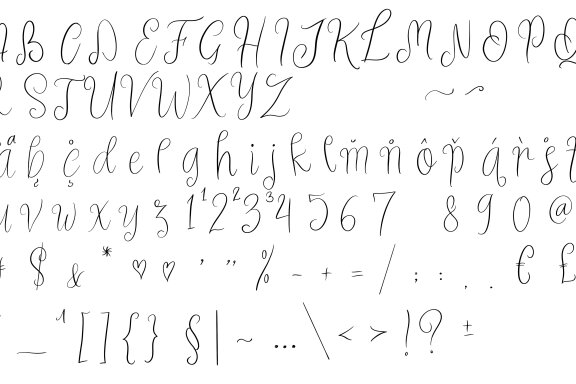 A B C D E F G H I J K L M N O P Q
R S T U V W X Y Z ~
å b ç d e f g h i j k l m̌ n̊ ô p̌ á r̀ s̊ t
u v w x y z 1¹ 2² 3³ 4 5 6 7 8 9 0 @
# $ & * ♡ ♡ ' " % - + = / ; : , . € £
_ ¹ [ ] { } § | ~ ... \ < > ! ? ±